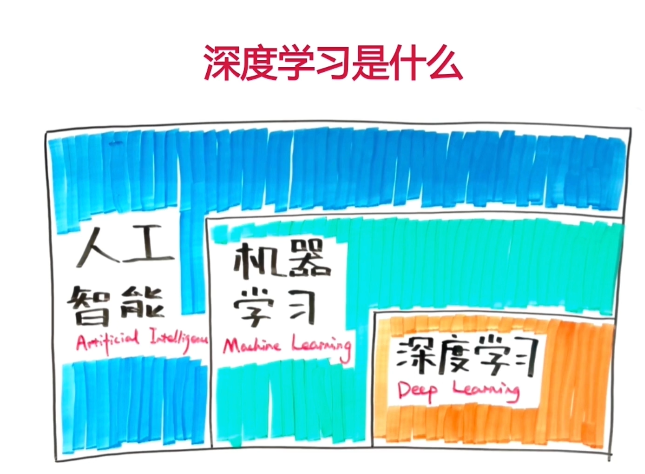 深度学习是什么
人工
智能
Artificial Intelligence
机器
学习
Machine Learning
深度学习
Deep Learning